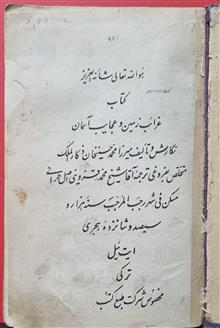 هو الله تعالی شانه العزیز
کتاب
غرائب زمین و عجایب آسمان
نگارش و تألیف میرزا محمد حسینخان ذکاء الملک
متخلص بفروغی ترجمهٔ آقا شیخ محمد قزوینی
مسکن فی شهر رجب المرجب سنه هزار و
سیصد و شانزده هجری
ایت ئیل
ترکی
مخصوص شرکت طبع کتب